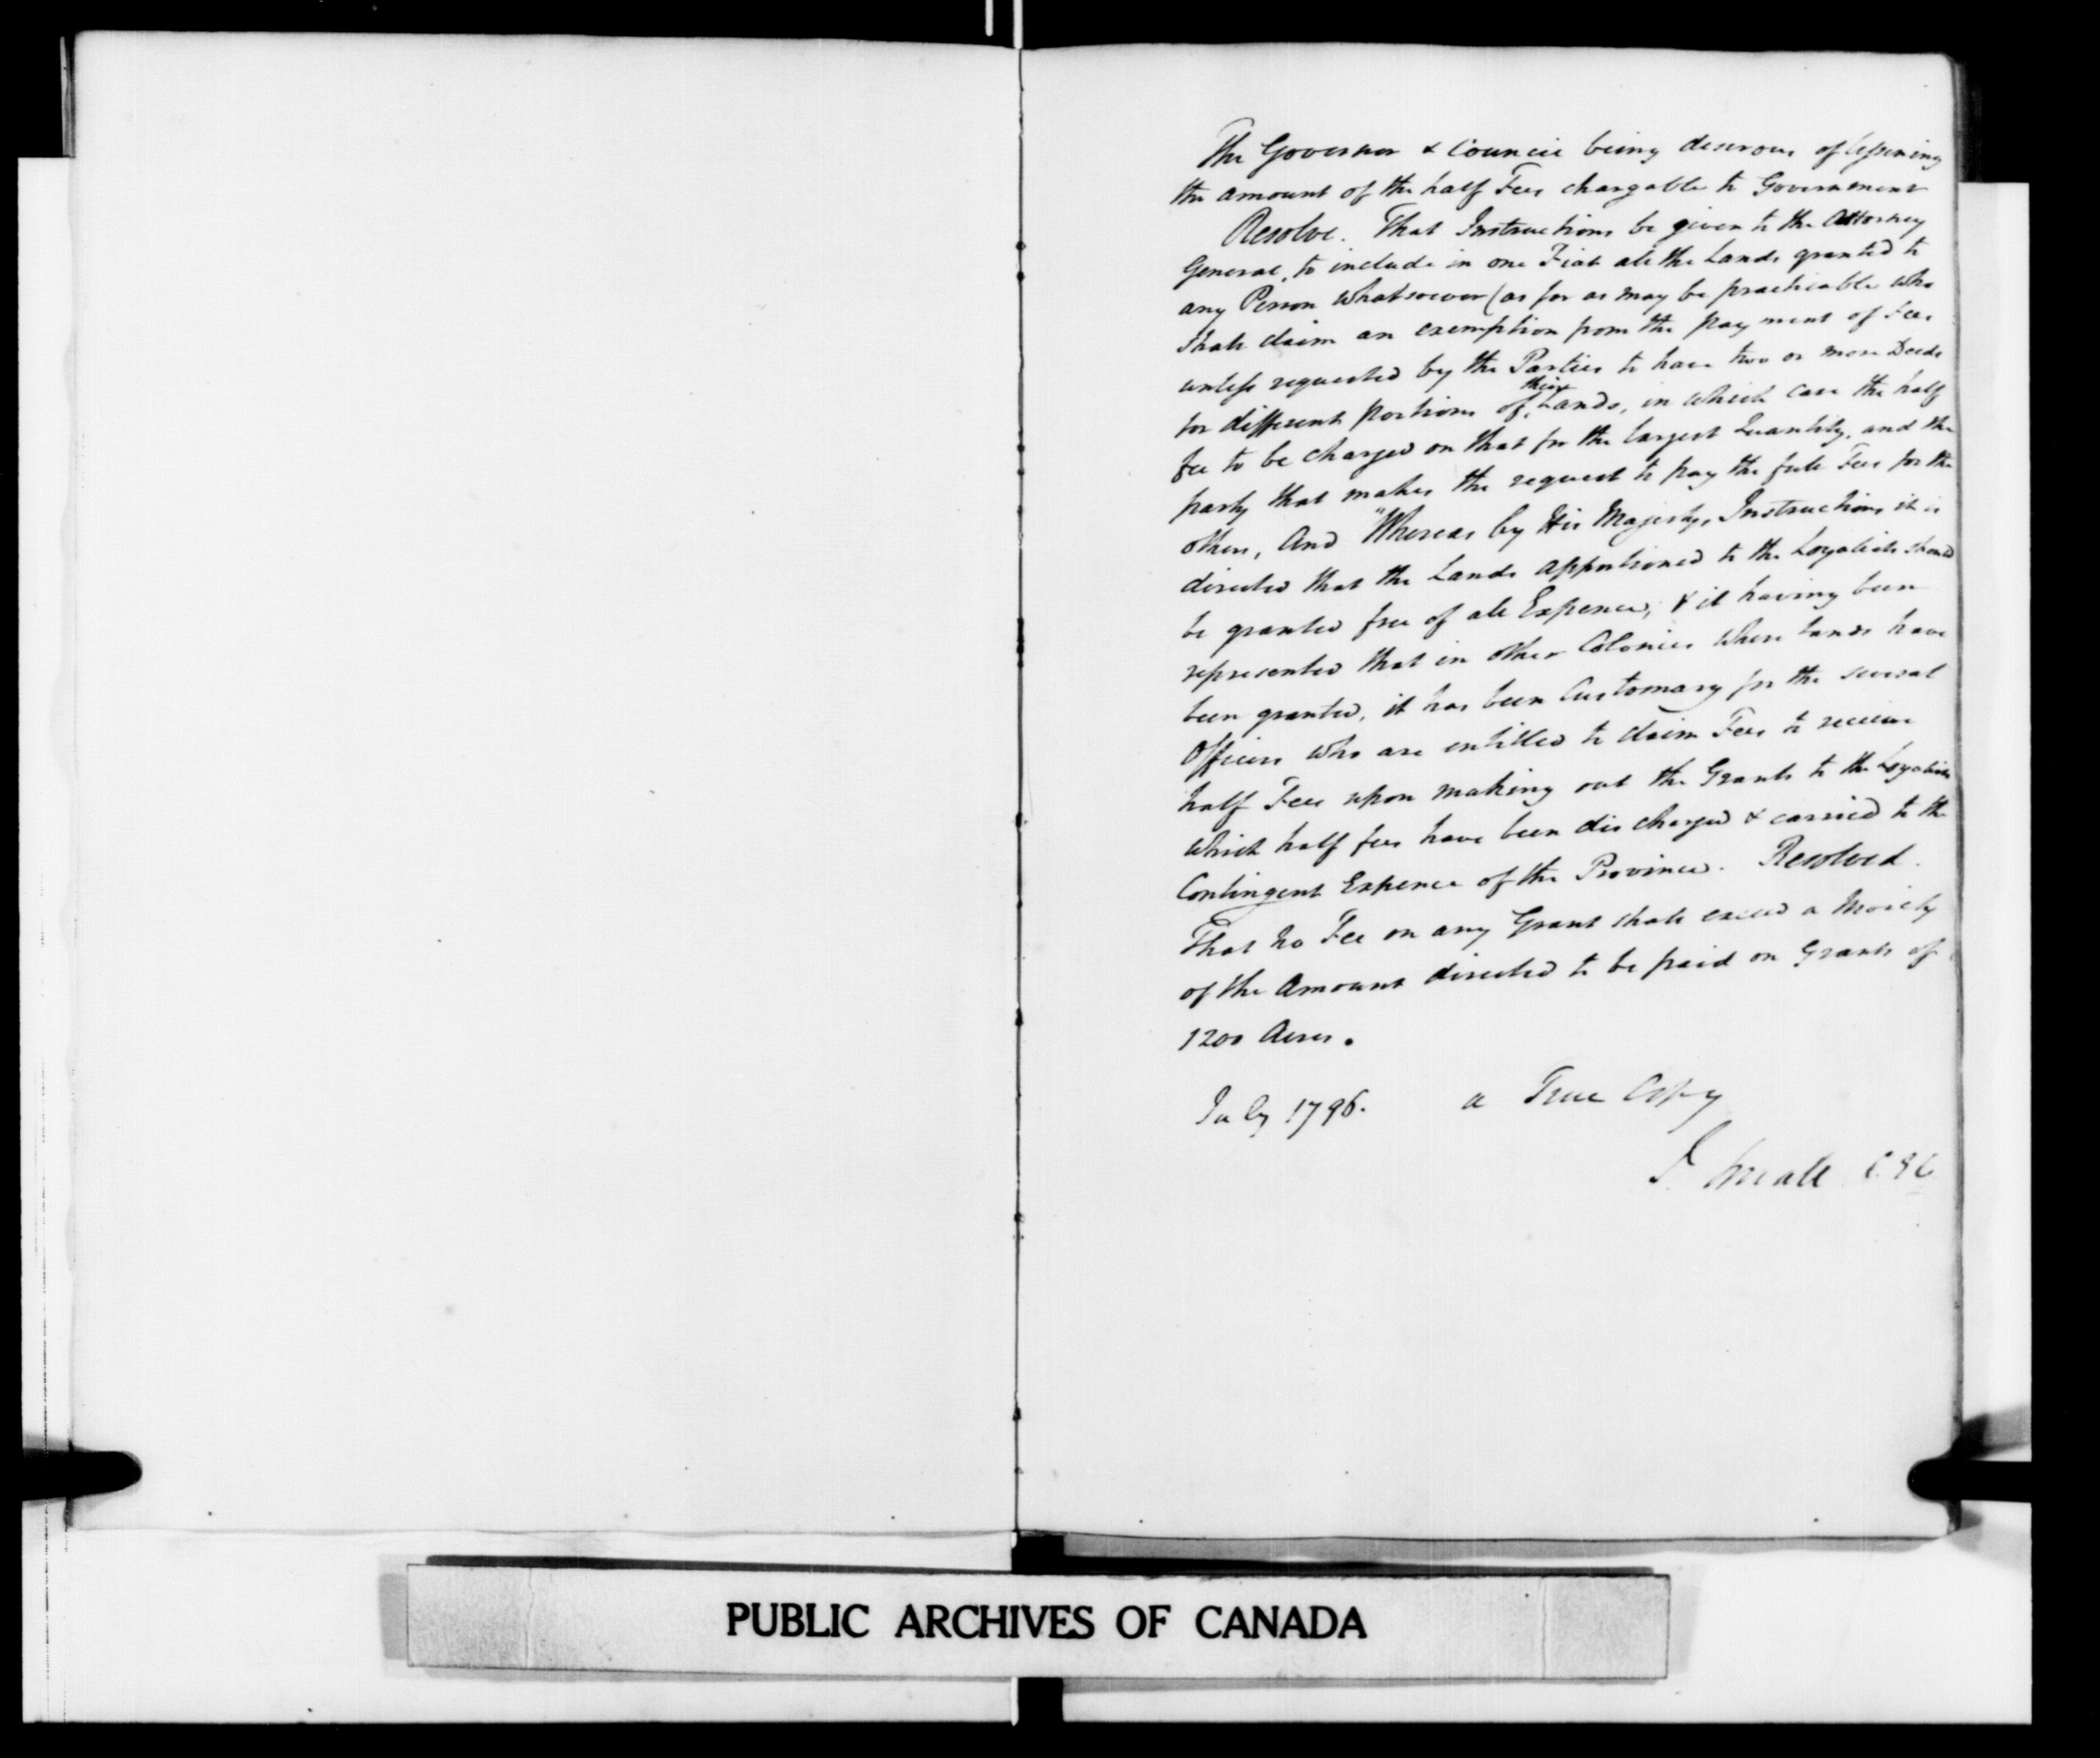 The Governor & Council being desirous of lessening
the amount of the half Fees chargable to Government
Resolve. That Instructions be given to the Attorney
General, to include in one Fiat all the Lands granted to
any Person whatsoever (as far as may be practicable who
shall claim an exemption from the payment of Fees
unless requested by the Parties to have two or more Deeds
for different portions of their Lands, in which case the half
fee to be charged on that for the largest Quantity, and the
party that makes the request to pay the full Fees for the
others, And "Whereas by His Majestys Instructions it is
directed that the Lands apportioned to the Loyalists should
be granted free of all Expence, & it having been
represented that in other Colonies where Lands have
been granted, it has been Customary for the several
Officers who are entitled to claim Fees to receive
half Fees upon making out the Grants to the Loyalists
which half fees have been discharged & carried to the
Contingent Expence of the Province. Resolved.
That no Fee on any Grant shall exceed a Moiety
of the Amount directed to be paid on Grants of
1200 Acres.
July 1796. a True Copy
J Small C E C
PUBLIC ARCHIVES OF CANADA